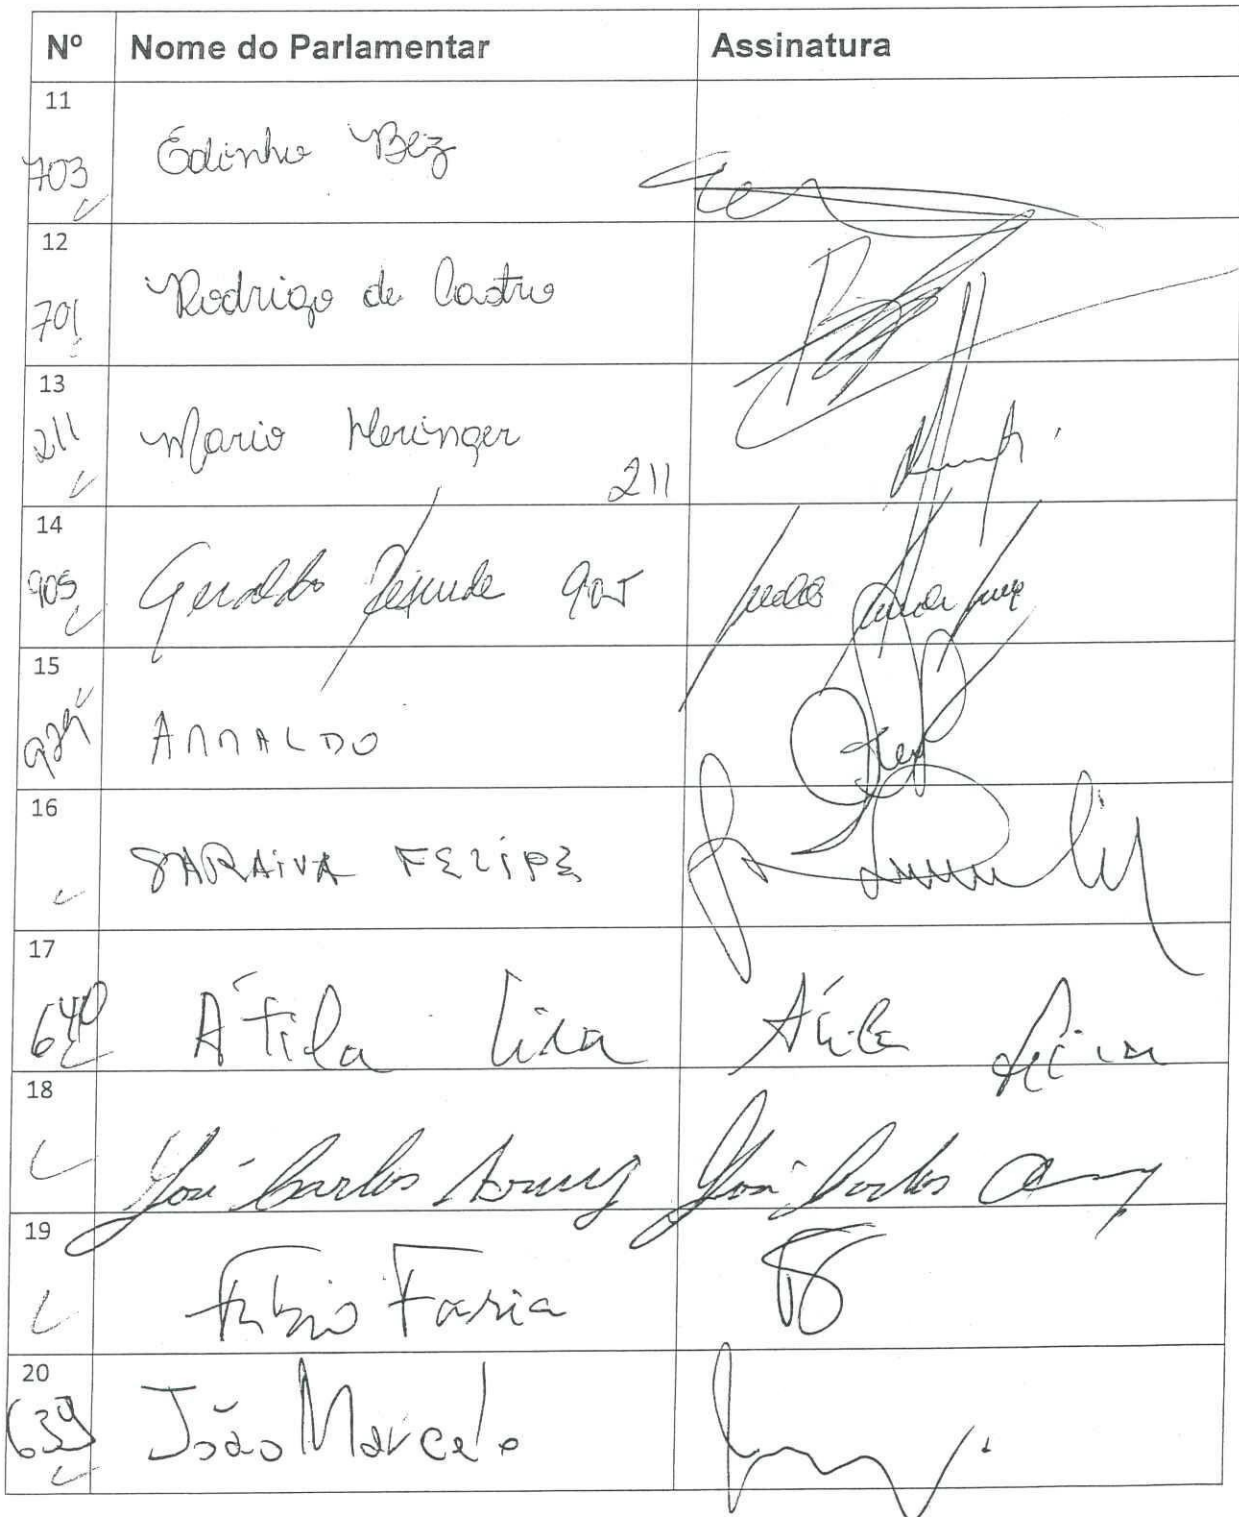 Nº Nome do Parlamentar Assinatura
11
703 Edinho Bez
12
701 Rodrigo de Castro
13
211 Mario Heringer 211
14
905 Geraldo Resende 905
15
929 ARNALDO
16
SARAIVA FELIPE
17
640 Átila Lira Átila Lira
18
José Carlos José Carlos
19
Fábio Faria
20
639 João Marcelo